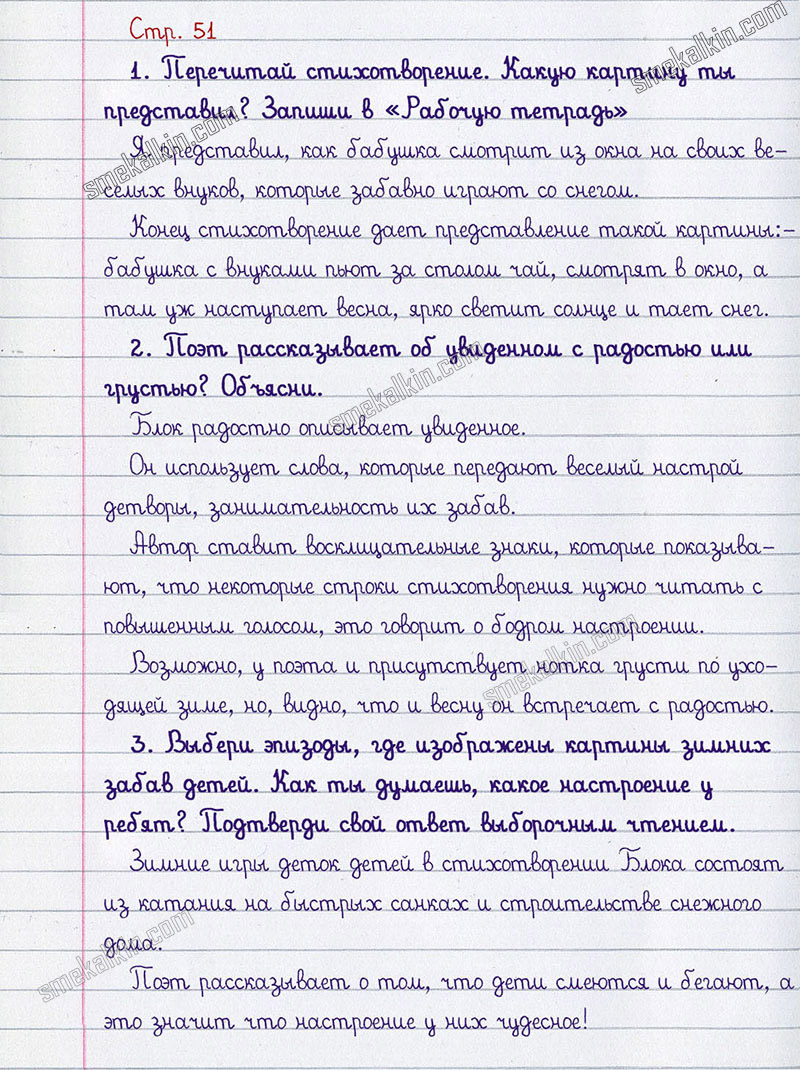 Стр. 51
1. Перечитай стихотворение. Какую картину ты
представил? Запиши в «Рабочую тетрадь»
Я представил, как бабушка смотрит из окна на своих ве-
селых внуков, которые забавно играют со снегом.
Конец стихотворение дает представление такой картины:-
бабушка с внуками пьют за столом чай, смотрят в окно, а
там уж наступает весна, ярко светит солнце и тает снег.
2. Поэт рассказывает об увиденном с радостью или
грустью? Объясни.
Блок радостно описывает увиденное.
Он использует слова, которые передают веселый настрой
детворы, занимательность их забав.
Автор ставит восклицательные знаки, которые показыва-
ют, что некоторые строки стихотворения нужно читать с
повышенным голосом, это говорит о бодром настроении.
Возможно, у поэта и присутствует нотка грусти по ухо-
дящей зиме, но, видно, что и весну он встречает с радостью.
3. Выбери эпизоды, где изображены картины зимних
забав детей. Как ты думаешь, какое настроение у
ребят? Подтверди свой ответ выборочным чтением.
Зимние игры деток детей в стихотворении Блока состоят
из катания на быстрых санках и строительстве снежного
дома.
Поэт рассказывает о том, что дети смеются и бегают, а
это значит что настроение у них чудесное!
smekalkin.com
smekalkin.com
smekalkin.com
smekalkin.com
smekalkin.com